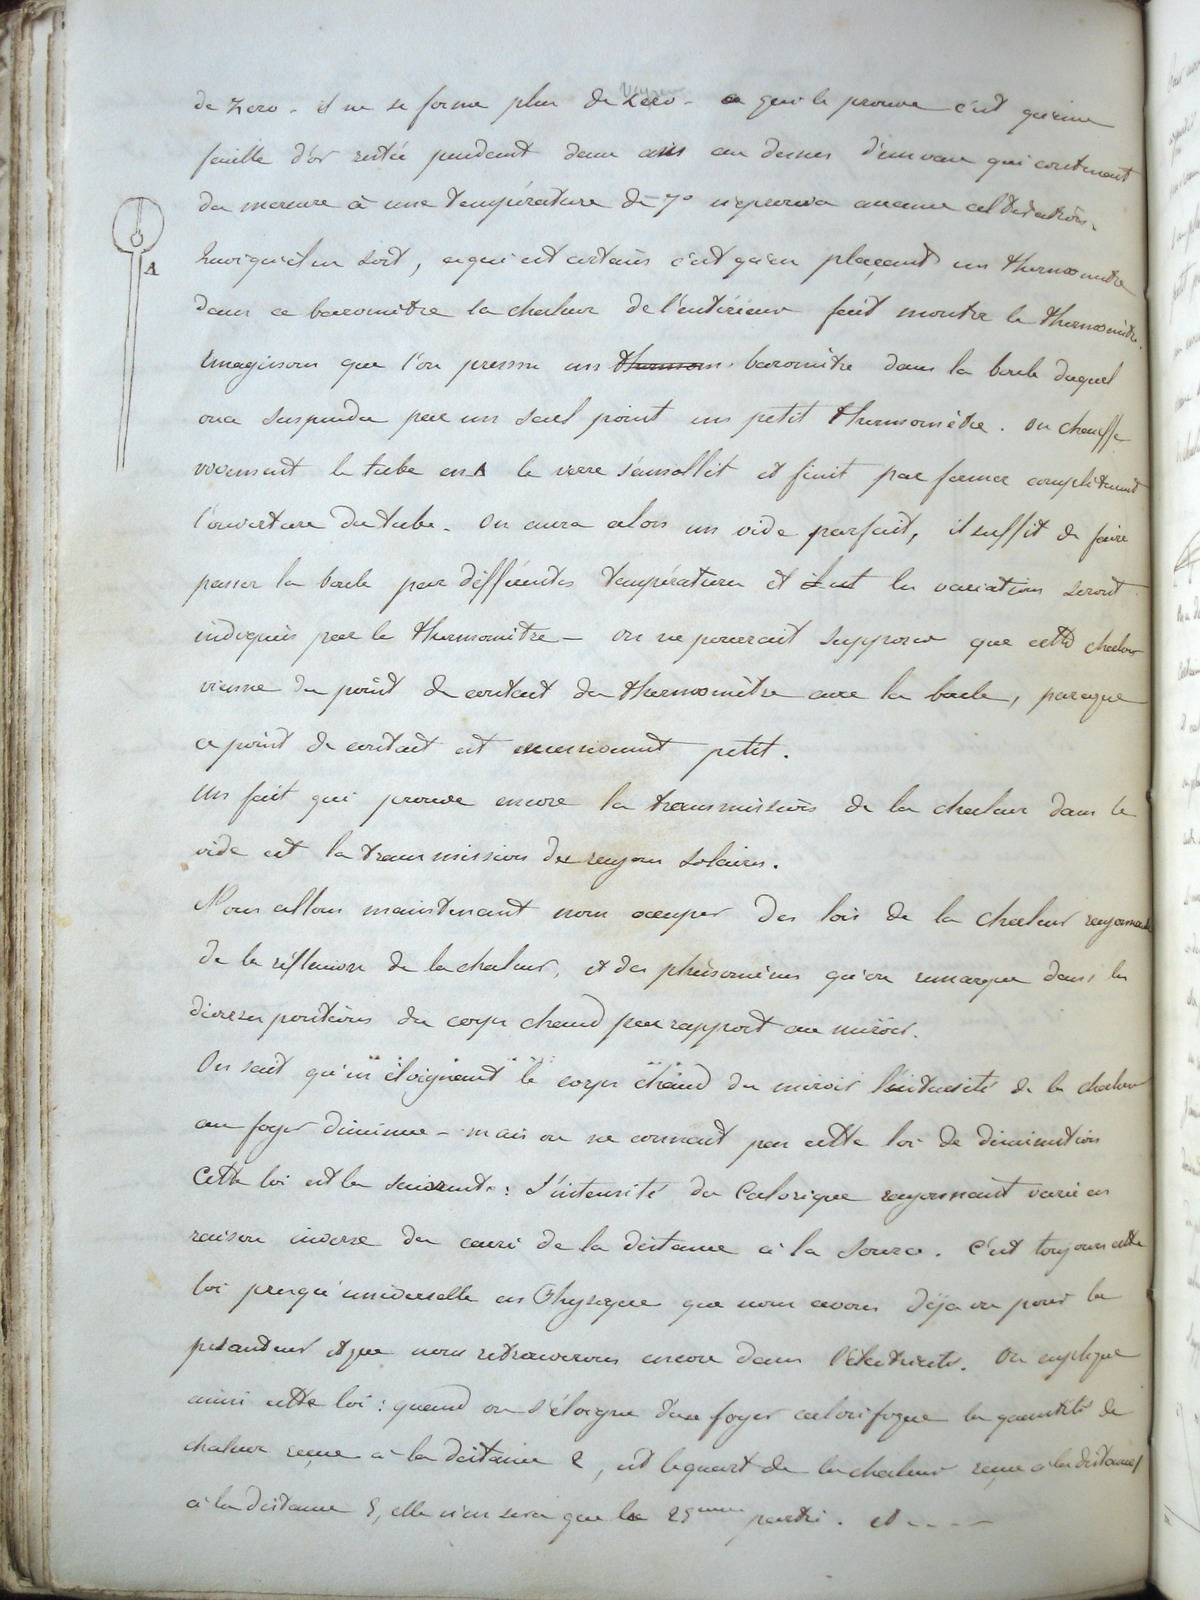 de Zero - il ne se forme plus de Zero - ce qui le prouve c'est qu'une
feuille d'or restée pendant deux ans au dessus d'un vase qui contenait
du mercure à une température de -7° n'éprouva aucune altération.
Quoiqu'il en soit, ce qui est certain c'est qu'en plaçant un thermomètre
dans ce baromètre la chaleur de l'extérieur fait monter le thermomètre.
A
Imaginons que l'on prenne un baromètre dans la boule duquel
on a suspendu par un seul point un petit thermomètre. on chauffe
vivement le tube en A le verre s'amollit et finit par fermer complètement
l'ouverture du tube. On aura alors un vide parfait, il suffit de faire
passer la boule par différentes températures et les variations seront
indiquées par le thermomètre - on ne pourrait supposer que cette chaleur
vienne du point de contact du thermomètre avec la boule, parceque
ce point de contact est excessivement petit.
Un fait qui prouve encore la transmission de la chaleur dans le
vide est la transmission des rayons solaires.
Nous allons maintenant nous occuper des lois de la chaleur rayonnante
de la réflexion de la chaleur, et des phénomènes qu'on remarque dans les
diverses positions du corps chaud par rapport au miroir.
On sait qu'en éloignant le corps chaud du miroir l'intensité de la chaleur
au foyer diminue - mais on ne connait pas cette loi de diminution
Cette loi est la suivante : L'intensité du Calorique rayonnant varie en
raison inverse du carré de la distance à la source. C'est toujours cette
loi presqu'universelle en Physique que nous avons déja vu pour la
pesanteur et que nous retrouverons encore dans l'électricité. On explique
ainsi cette loi : quand on s'éloigne d'un foyer calorifique la quantité de
chaleur reçue à la distance 2, est le quart de la chaleur reçue à la distance 1
à la distance 5, elle n'en sera que la 25eme partie. et - - - -